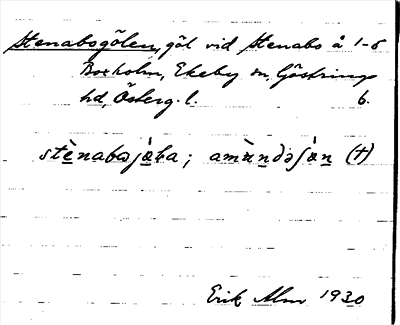 Stenabogölen, göl vid Stenabo å 1-5
Boxholm, Ekeby sn, Göstrings
hd, Österg. l. 6.
stènabəjɷ̀ka; amùndəʃɷ̀n (†)
Erik Alm 1930